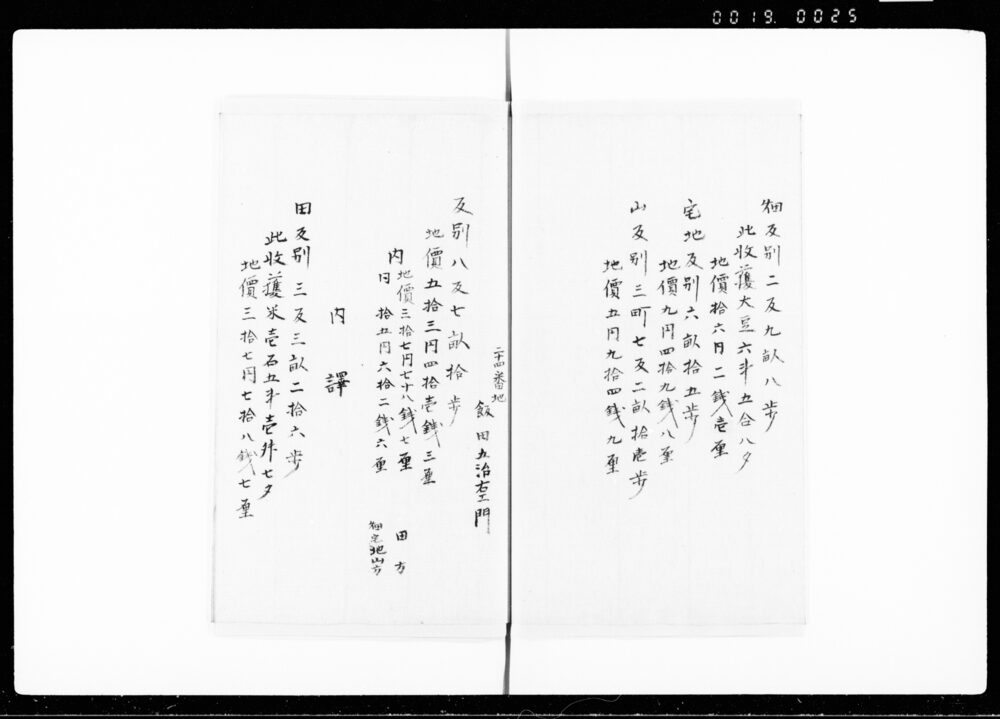 0019 0025
畑反別二反九畝八歩
此收護大豆六斗五合八夕
地價拾六円二銭壱厘
宅地反別六畝拾五歩
地價九円四拾九銭八厘
山反別三町七反二畝拾壱歩
地價五円九拾四銭九厘
二十四番地
飯田五治右エ門
反別八反七畝拾歩
地價五拾三円四拾壱銭三厘
内地價三拾七円七十八銭七厘 田方
同拾五円六拾二銭六厘 畑宅地山方
内譯
田反別三反三畝二拾六歩
此收護米壱石五斗壱升七夕
地價三拾七円七拾八銭七厘